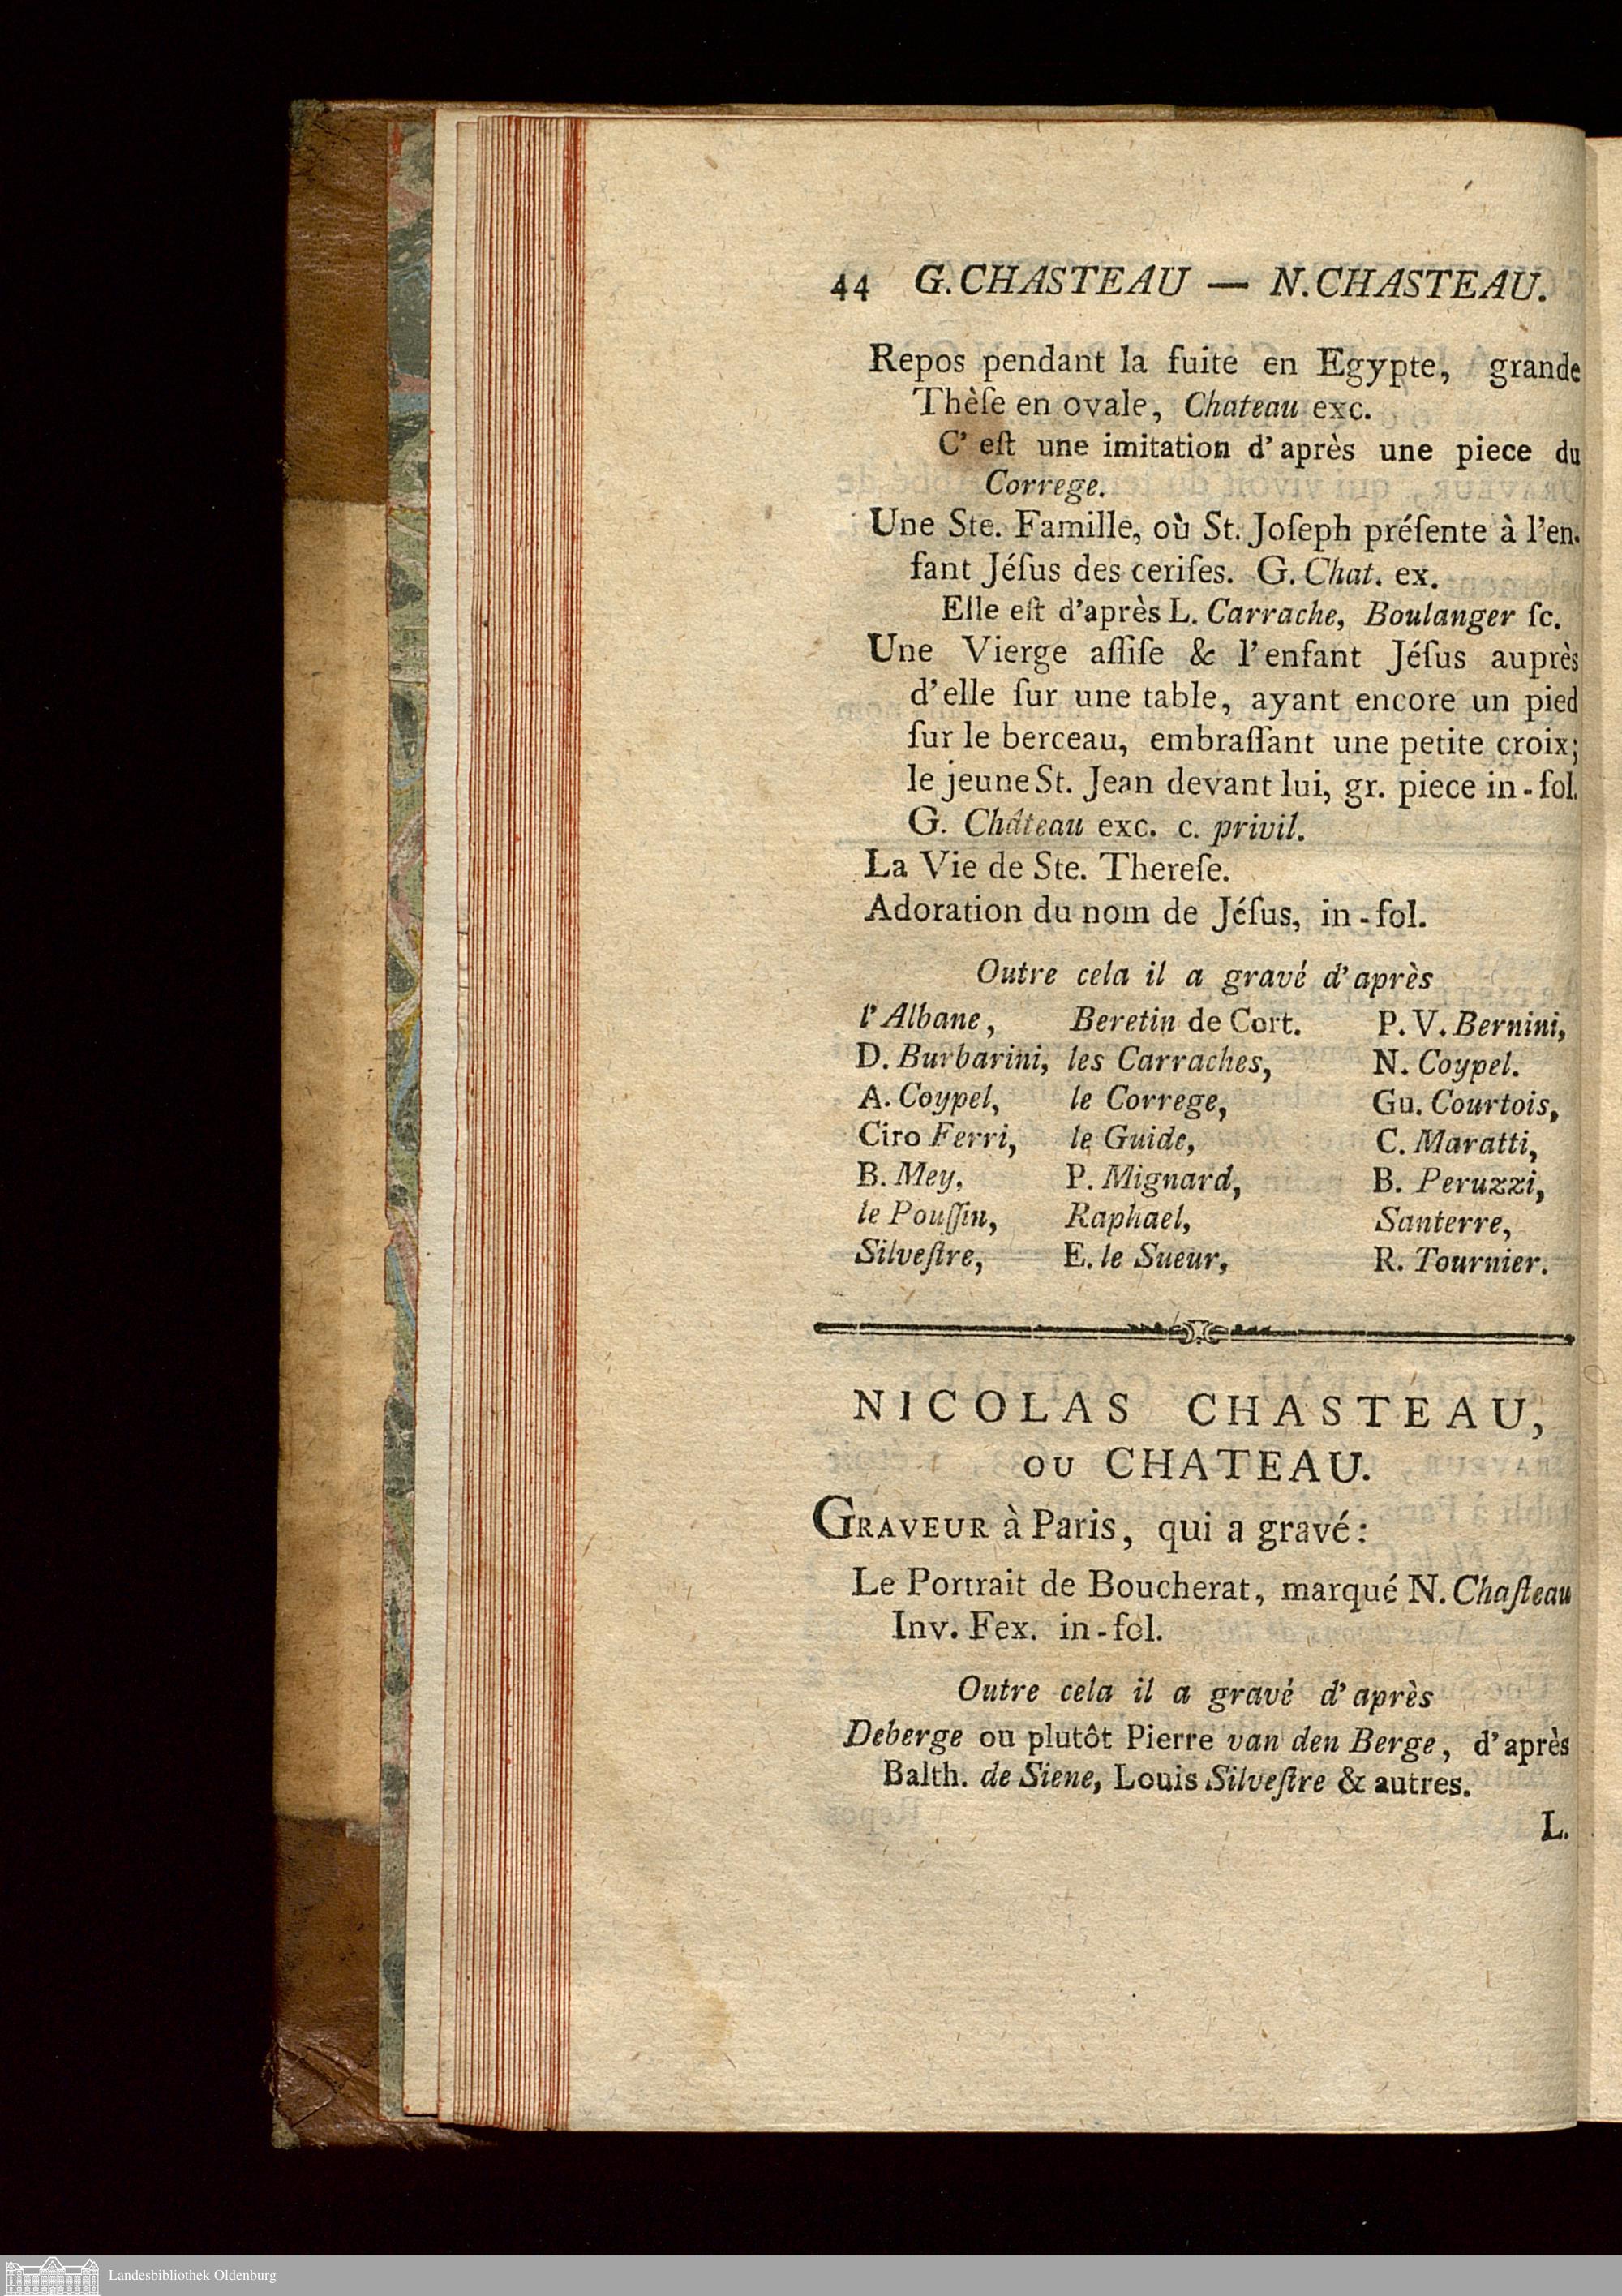 44 G. CHASTEAU — N. CHASTEAU.
Repos pendant la fuite en Egypte, grande
Thèſe en ovale, Chateau exc.
C' eſt une imitation d'après une piece du
Correge.
Une Ste. Famille, où St. Joſeph préſente à l'en-
fant Jéſus des ceriſes. G. Chat. ex.
Elle eſt d'après L. Carrache, Boulanger ſc.
Une Vierge aſſiſe & l'enfant Jéſus auprès
d'elle ſur une table, ayant encore un pied
ſur le berceau, embraſſant une petite croix;
le jeune St. Jean devant lui, gr. piece in-fol.
G. Château exc. c. privil.
La Vie de Ste. Thereſe.
Adoration du nom de Jéſus, in-fol.
Outre cela il a gravé d'après
l'Albane, Beretin de Cort. P. V. Bernini,
D. Burbarini, les Carraches, N. Coypel.
A. Coypel, le Correge, Gu. Courtois,
Ciro Ferri, le Guide, C. Maratti,
B. Mey, P. Mignard, B. Peruzzi,
le Pouſſin, Raphael, Santerre,
Silveſtre, E. le Sueur, R. Tournier.
NICOLAS CHASTEAU,
OU CHATEAU.
GRAVEUR à Paris, qui a gravé:
Le Portrait de Boucherat, marqué N. Chaſteau
Inv. Fex. in-fol.
Outre cela il a gravé d'après
Deberge ou plutôt Pierre van den Berge, d'après
Balth. de Siene, Louis Silveſtre & autres.
L.
Landesbibliothek Oldenburg